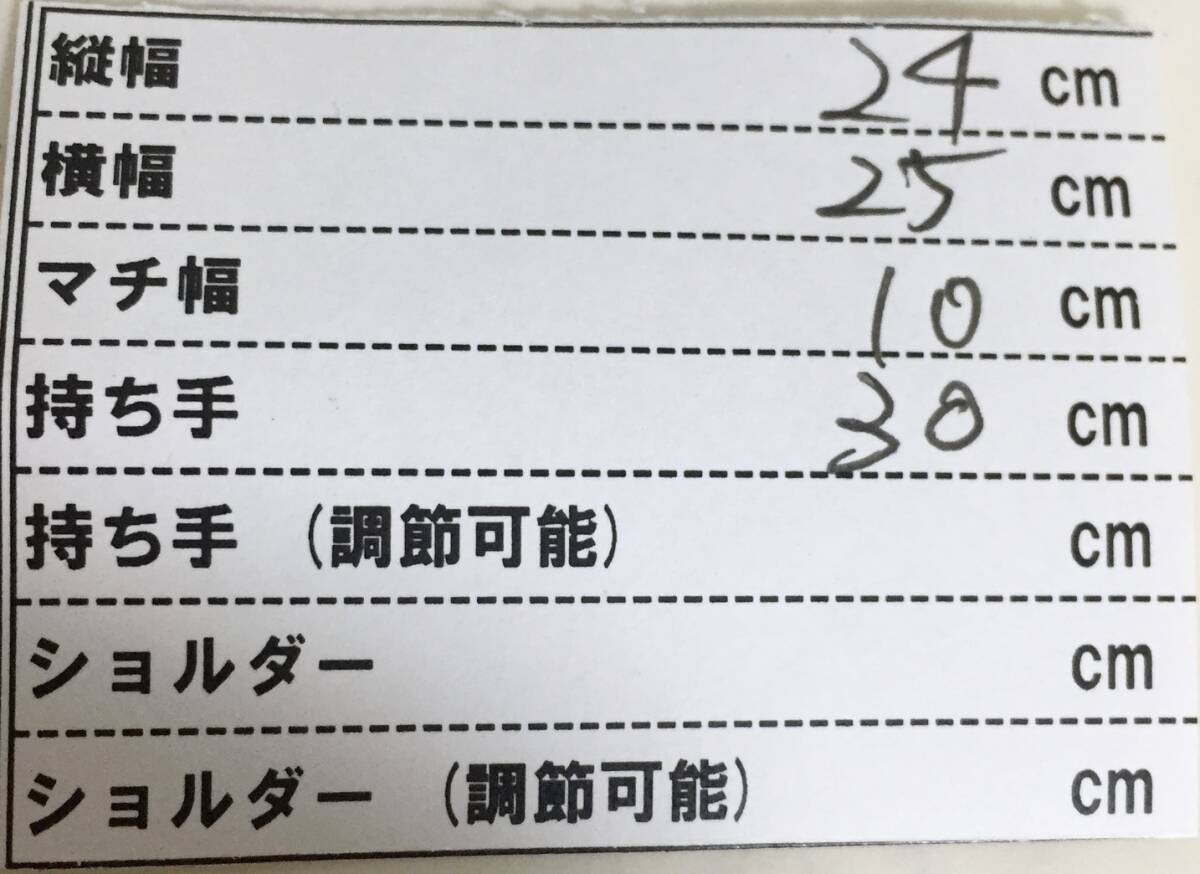 縦幅 24 cm
横幅 25 cm
マチ幅 10 cm
持ち手 30 cm
持ち手 (調節可能) cm
ショルダー cm
ショルダー (調節可能) cm